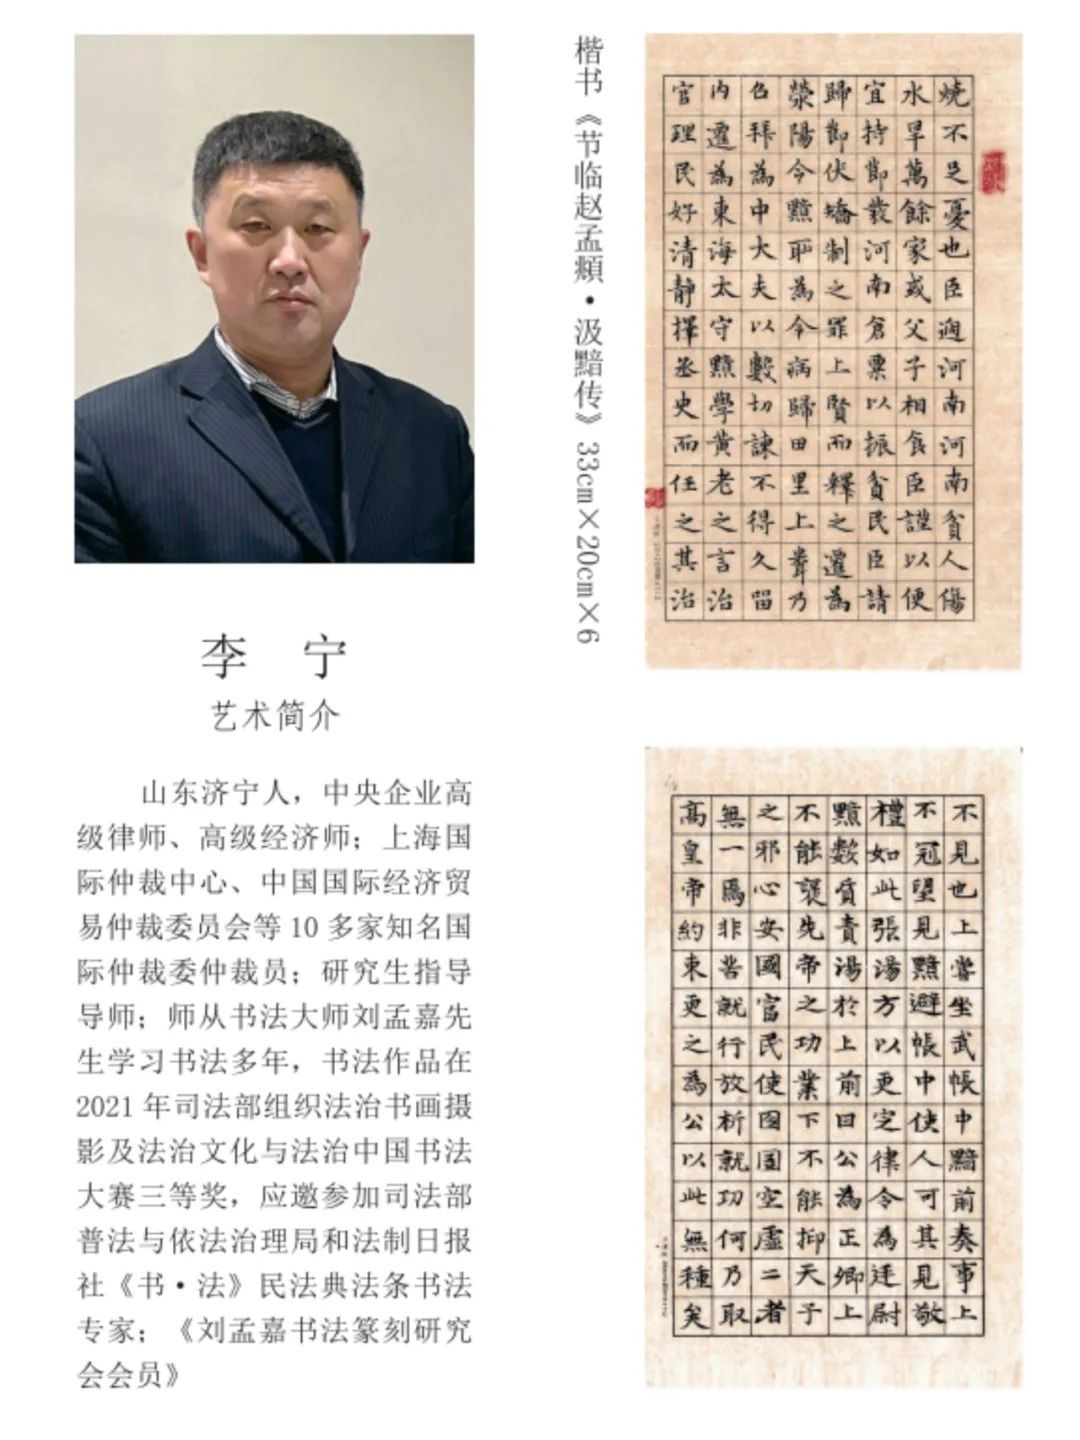 李 宁
艺术简介
山东济宁人，中央企业高
级律师、高级经济师；上海国
际仲裁中心、中国国际经济贸
易仲裁委员会等 10 多家知名国
际仲裁委仲裁员；研究生指导
导师；师从书法大师刘孟嘉先
生学习书法多年，书法作品在
2021 年司法部组织法治书画摄
影及法治文化与法治中国书法
大赛三等奖，应邀参加司法部
普法与依法治理局和法制日报
社《书·法》民法典法条书法
专家；《刘孟嘉书法篆刻研究
会会员》
楷书《节临赵孟頫·汲黯传》33cm×20cm×6
燒不足憂也臣過河南河南貧人傷
水旱萬餘家或父子相食臣謹以便
宜持節發河南倉粟以振貧民臣請
歸節伏矯制之罪上賢而釋之遷為
滎陽令黯恥為令病歸田里上聞乃
召拜為中大夫以數切諫不得久留
内遷為東海太守黯學黃老之言治
官理民好清靜擇丞史而任之其治
不見也上嘗坐武帳中黯前奏事上
不冠望見黯避帳中使人可其見敬
禮如此張湯方以更定律令為廷尉
黯數質責湯於上前曰公為正卿上
不能褒先帝之功業下不能抑天子
之邪心安國富民使囹圄空虛二者
無一焉非苦就行放析就功何乃取
高皇帝約束更之為公以此無種矣